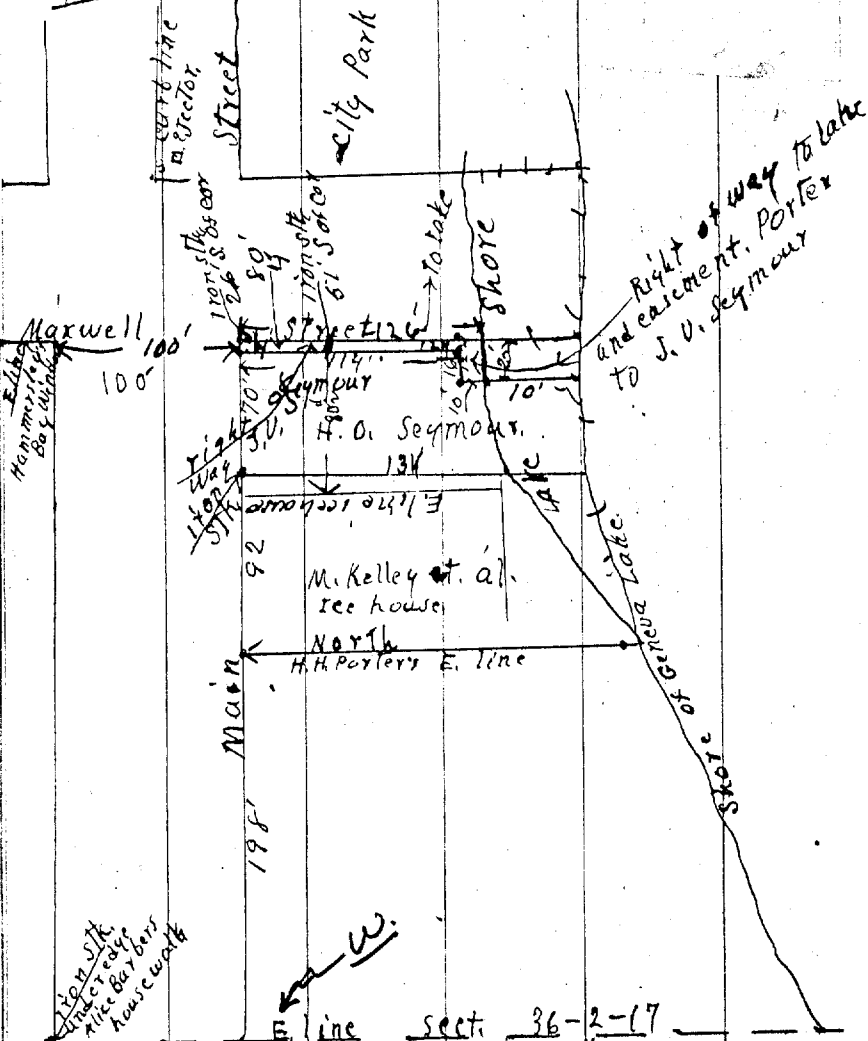 curb line
Street
City Park
Iron stk
26' S. of cor
80'
Iron stk
61' S of cor
To Lake
Shore
Right of way To Lake
and easement. Porter
to J. V. Seymour
Maxwell
100'
Street 126'
100'
E line
Hammersleys
Bay Window
114'
10'
10'
Seymour
70'
J. V.
right
way
H. O. Seymour.
Iron
Stk
134
Lake
E. line icehouse
92
M. Kelley et. al.
Ice house
North
H. H. Porter's E. line
Main
198'
Shore of Geneva Lake
Iron Stk.
under edge
Alice Barbers
housewalk
W.
E. line sect. 36-2-17